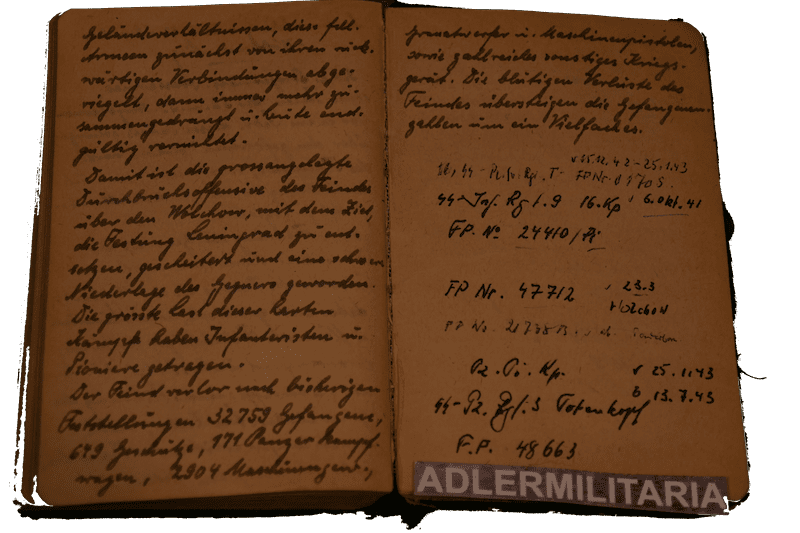 Geländeverhältnissen, diese fedl.
Armeen zunächst von ihren rück-
wärtigen Verbindungen abge-
riegelt, dann immer mehr zu-
sammengedrängt u. heute end-
gültig vernichtet.
Damit ist die grossangelegte
Durchbruchsoffensive des Feindes
über den Wolchow, mit dem Ziel,
die Festung Leningrad zu ent-
setzen, gescheitert und eine schwere
Niederlage des Gegners geworden.
Die grösste Last dieser harten
Kämpfe haben Infanteristen u.
Pioniere getragen.
Der Feind verlor nach bisherigen
Feststellungen 32759 Gefangene,
649 Geschütze, 171 Panzerkampf-
wagen, 2904 Maschinengew.,
Granatwerfer u. Maschinenpistolen,
sowie zahlreiches sonstiges Kriegs-
gerät. Die blutigen Verluste des
Feindes übersteigen die Gefangenen-
zahlen um ein Vielfaches.
v 15.12.42-25.1.43
FP Nr. 01705.
SS-Inf. Rgt. 9 16. Kp v 6. Okt. 41
F.P. No 24410/Pi
FP Nr. 47712 v 23.3
Wolchow
FP Nr.
Pz. Pi. Kp. v 25.1.43
b 13.7.43
SS-Pz. Rgt. 3 Totenkopf
F.P. 48663
ADLERMILITARIA